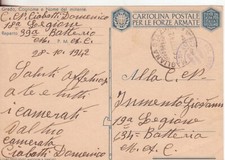 Grado, Cognome e Nome del mittente
C.N. Ciabatti Domenico
19a Legione
Reparto 39a Batteria
M. d. C.
28-10-1942
Saluti affettuosi
a te e tutti
i camerati
dal tuo
camerata
Ciabatti Domenico
CARTOLINA POSTALE
PER LE FORZE ARMATE
Alla C.N.
Giovanni
19a Legione
134a Batteria
M. d. C.